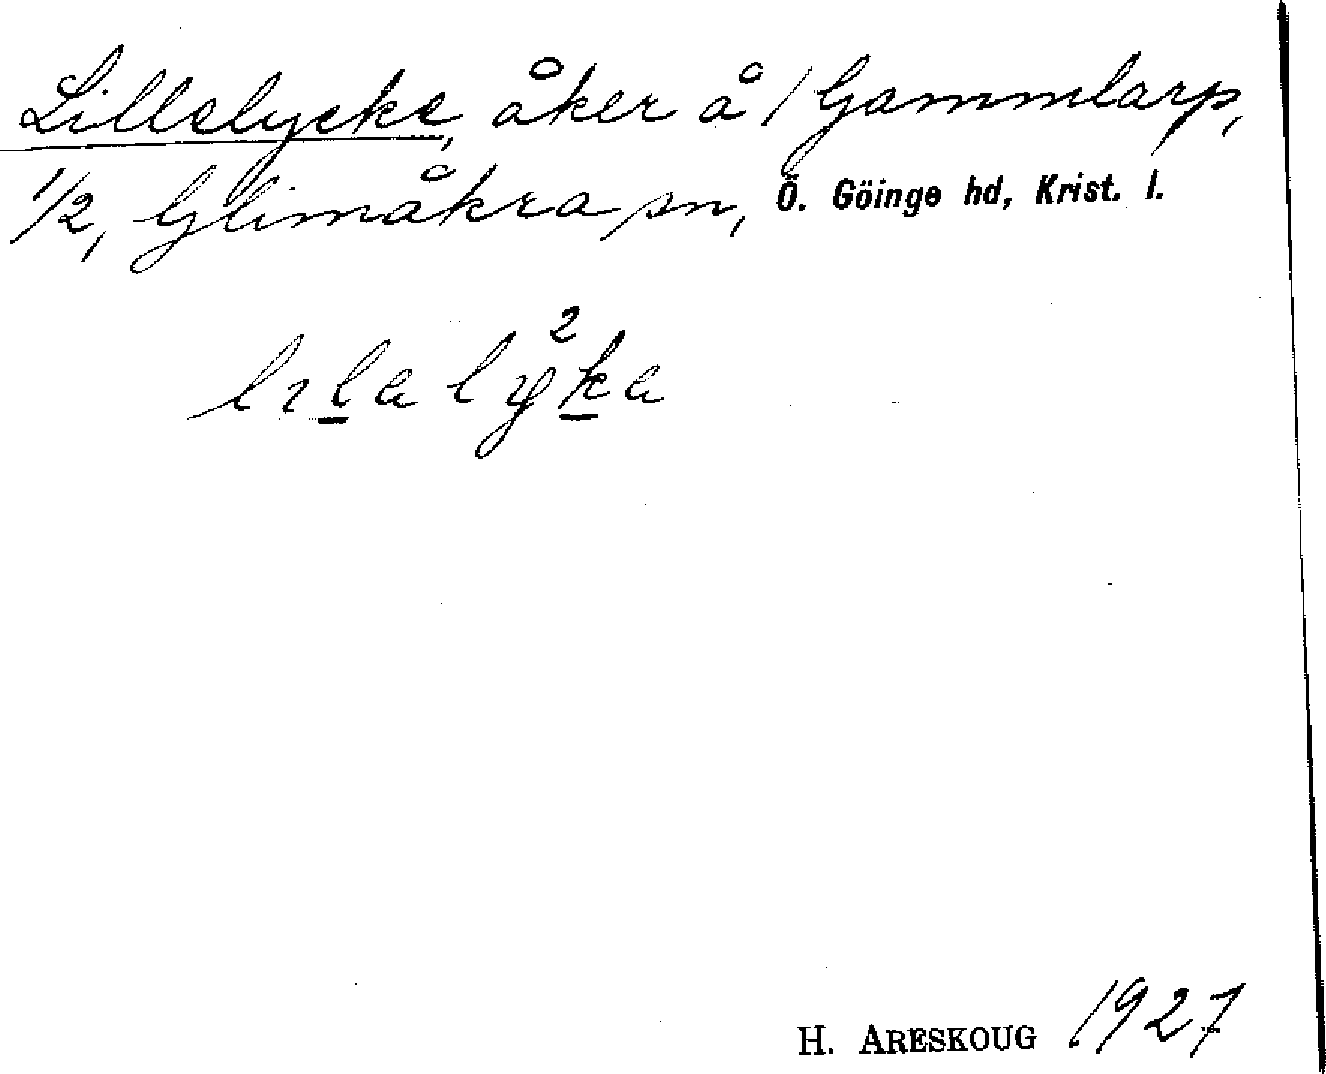 Lillelycke, åker å 1 Gammlarp,
1/2, Glimåkra sn, Ö. Göinge hd, Krist. l.
lɩla ly²ka
H. ARESKOUG 1927